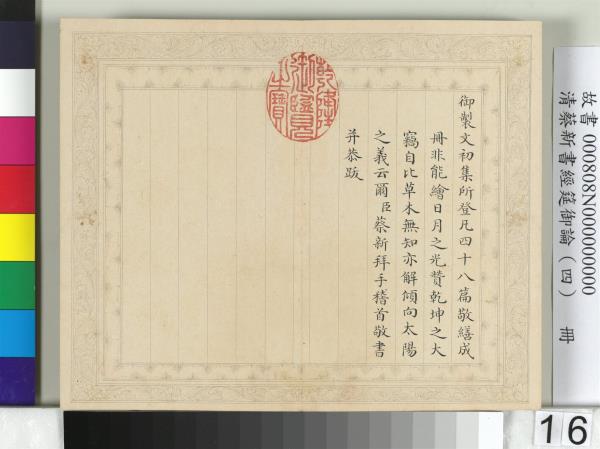 御製文初集所登凡四十八篇敬繕成
冊非能繪日月之光贊乾坤之大
竊自比草木無知亦解傾向太陽
之義云爾臣蔡新拜手稽首敬書
并恭跋
乾隆御覽之寶
故書 000808N000000000
清蔡新書經筵御論（四） 冊
16